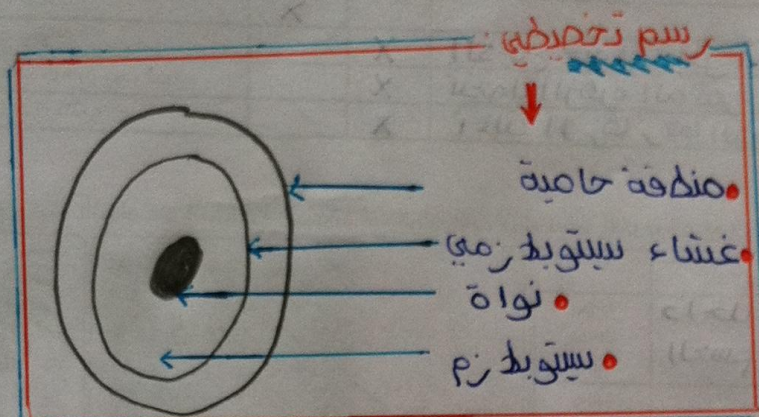 رسم تخطيطي
• منطقة حامية
• غشاء سيتوبلازمي
• نواة
• سيتوبلازم